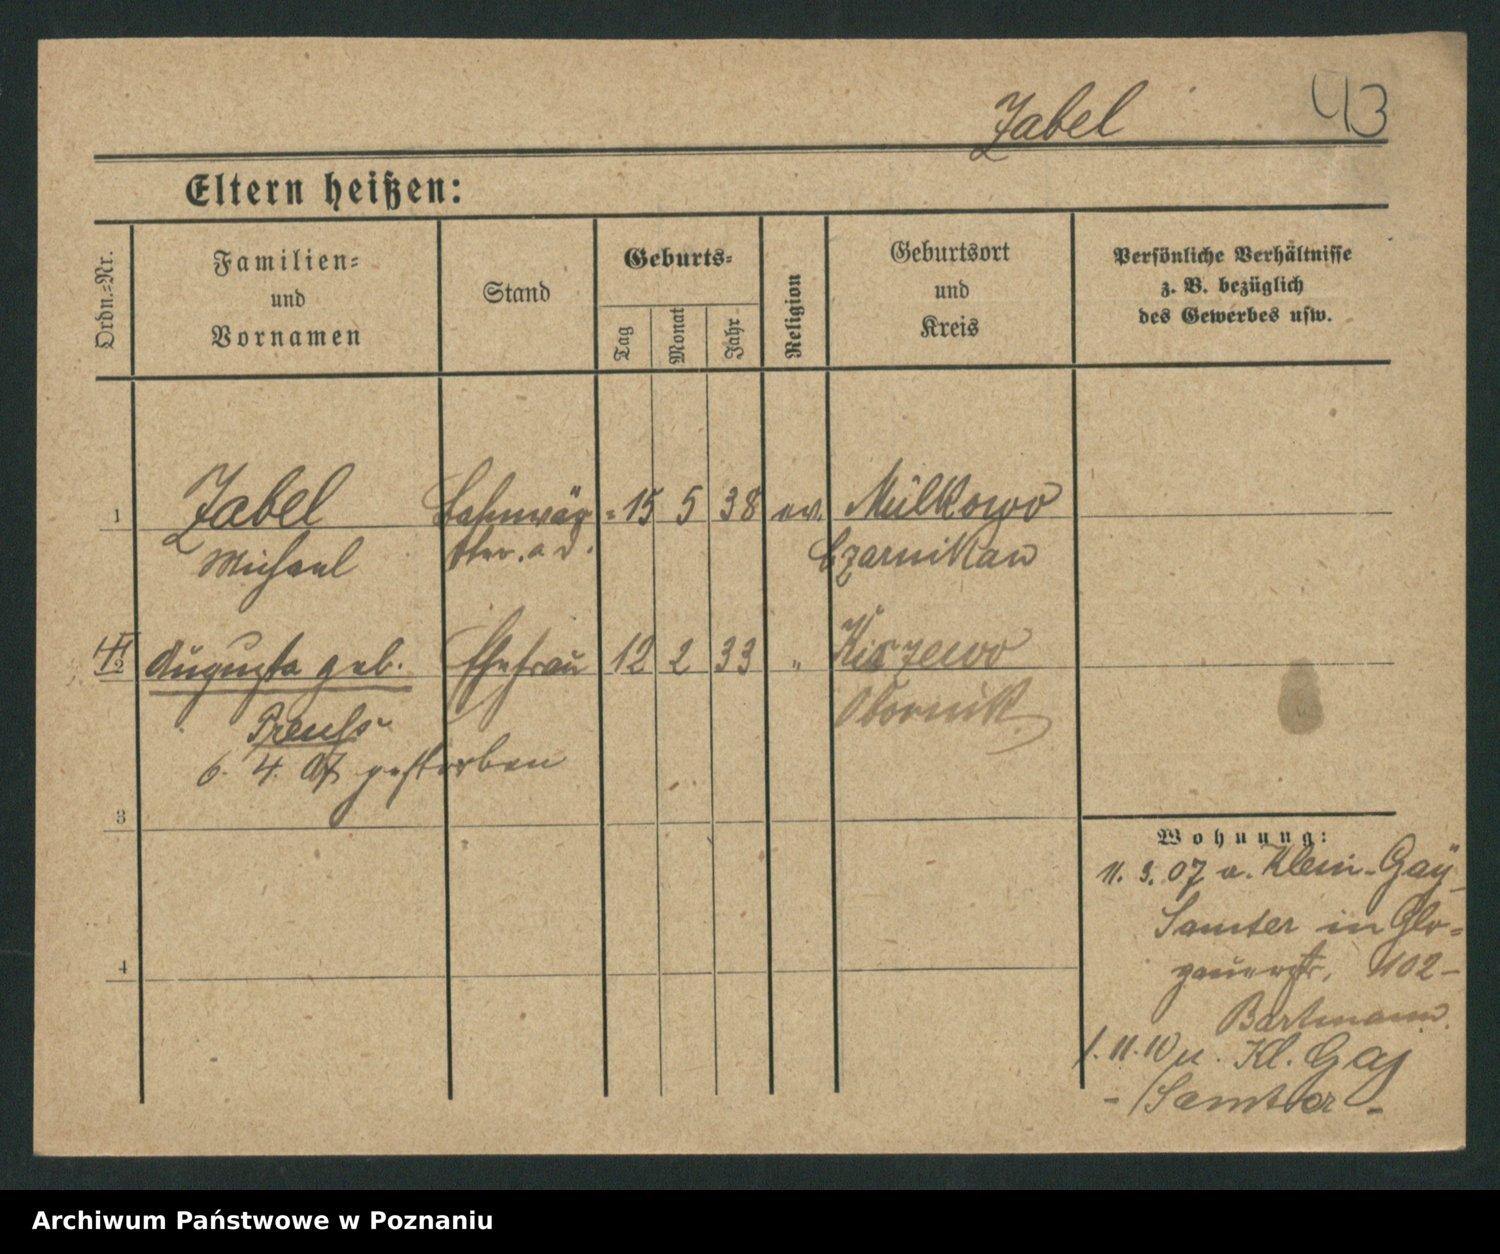 Zabel 43
Eltern heißen:
Ordn.-Nr.
Familien-
und
Vornamen
Stand
Geburts-
Tag
Monat
Jahr
Religion
Geburtsort
und
Kreis
Persönliche Verhältnisse
z. B. bezüglich
des Gewerbes usw.
1 Zabel Bahnwär- 15 5 38 ev. Milkowo
Michael ter. a. d. Czarnikau
2 Augusta geb. Ehefrau 12 2 33 " Kiszewo
Preuss Obornik
6. 4. 07 gestorben
3
4
Wohnung:
11. 3. 07 a. Klein-Gay
Samter in Glo-
gauerstr. 102-
Bartmann.
1. 11. 10 n. Kl. Gay
- Samter -
Archiwum Państwowe w Poznaniu